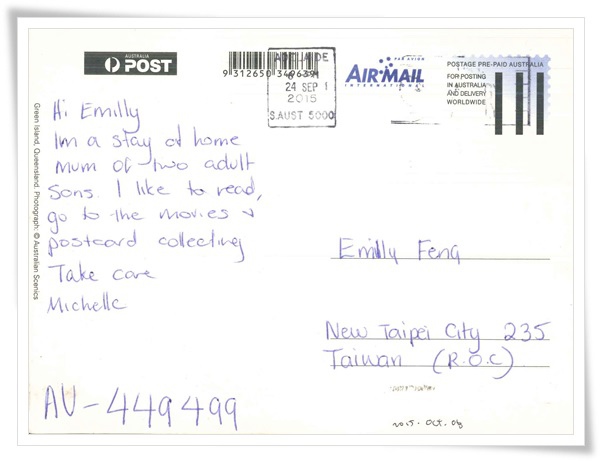 AUSTRALIA
POST
9 312650 349639
ADELAIDE
24 SEP
2015
S.AUST 5000
PAR AVION
AIR MAIL
INTERNATIONAL
POSTAGE PRE-PAID AUSTRALIA
FOR POSTING
IN AUSTRALIA
AND DELIVERY
WORLDWIDE
Green Island, Queensland. Photograph: © Australian Scenics
Hi Emilly
Im a stay at home
mum of two adult
Sons. I like to read,
go to the movies &
postcard collecting
Take care
Michelle
AU-449499
Emilly Feng
New Taipei City 235
Taiwan (R.O.C)
2015. OCT. 06